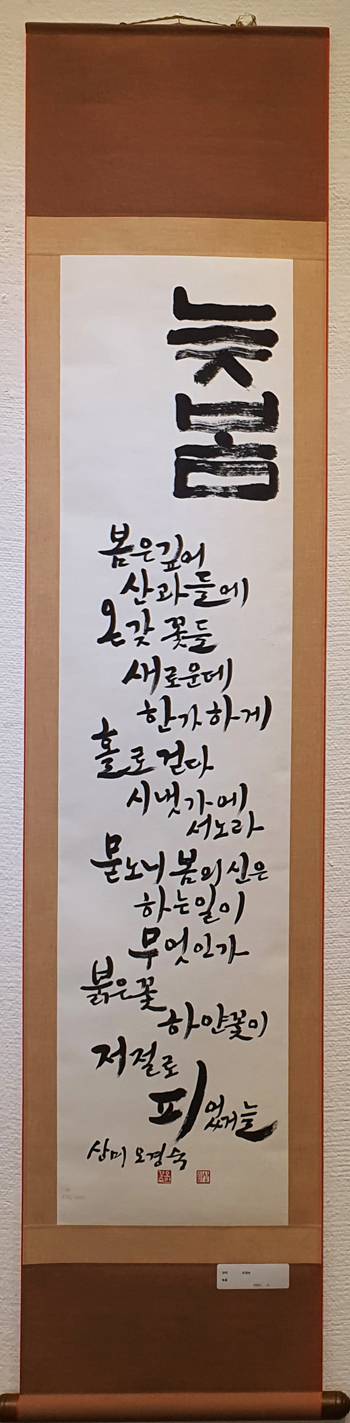 늦봄
봄은 깊어
산과 들에
온갖 꽃들
새로운데
한가하게
홀로 걷다
시냇가에
서노라
묻노니 봄의 신은
하는 일이
무엇인가
붉은 꽃
하얀 꽃이
저절로
피었거늘
상미 오경숙